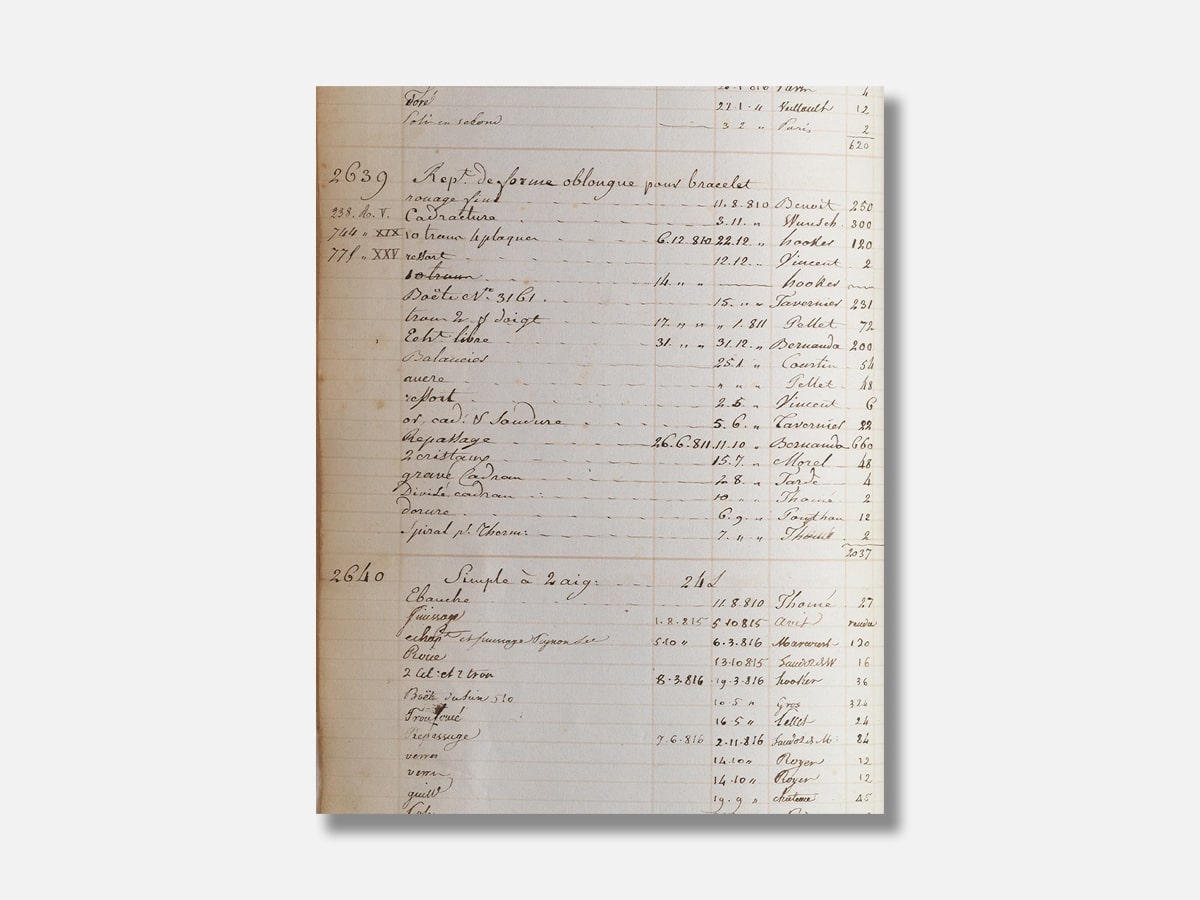 26.1.810 Tavin 4
Doré 27.1. " Veillault 12
Poli en second 3 2 " Paris 2
620
2639 Rept. de forme oblongue pour bracelet
rouage fini 11.8.810 Benoit 250
238. R. V. Cadracture 3.11. " Wunsch 300
744 " XIX 10 trous 4 plaques 6.12.810 22.12. " hooker 120
775 " XXV ressort 12.12. " Vincent 2
10 trous 14 " " hooker
Boëte No. 3161. 15. " " Tavernier 231
trous 2 & doigt 17. " " " 1.811 Pellet 72
Echt. libre 31. " " 31.12. " Bernauda 200
Balancier 25.1 " Courtin 54
ancre " " " Pellet 48
ressort 2.5. " Vincent 6
or, cad: & Soudure 5.6. " Tavernier 22
Repassage 26.6.811. 11.10 " Bernauda 660
2 cristaux 15.7. " Morel 48
gravé Cadran 28. " Tarde 4
Divisé cadran 10 " " Thomé 2
dorure 6.9. " Ponthon 12
Spiral pl. Therm: 7. " " Thomé 2
2037
2640 Simple à 2 aig: 24 L
Ebauche 11.8.810 Thomé 27
finissage 1.8.815 5 10 815 avit rendu
echapt et finissage Pignon 5.10 " 6.3.816 120
Roue 13.10 815 16
2 Cil: et 2 trou 8.3.816 19.3.816 hooker 36
Boëte 510 10.5 " Gros 324
16.5 " Pellet 24
Repassage 7.6.816 2.11.816 84
verre 14.10 " Royer 12
verre 14.10 " Royer 12
guill 19.9 " 45